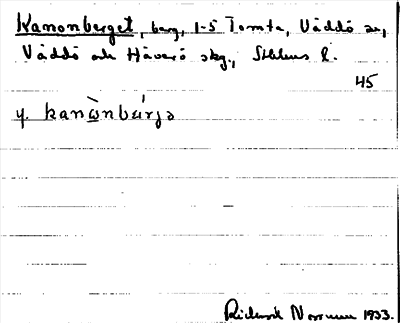 Kanonberget, berg, 1-5 Tomta, Väddö sn,
Väddö och Häverö skg., Sthlms l.
45
y. kanὼnbärjə
Rickard Norrman 1933.